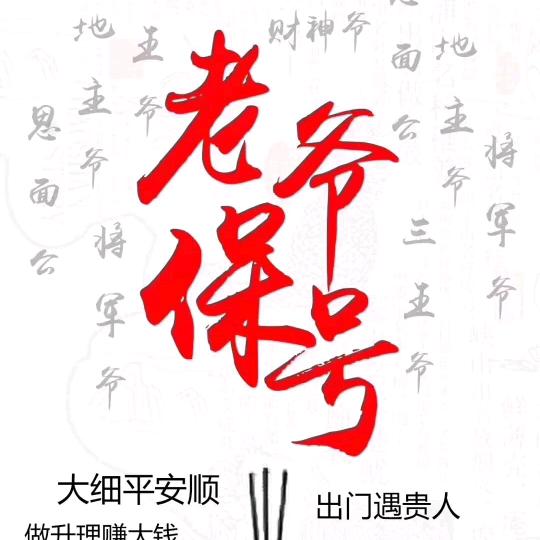 老爷
保号
财神爷
地主爷
王爷
恩面公
将军爷
面公
地主爷
将军爷
三王爷
大细平安顺
出门遇贵人
做升理赚大钱